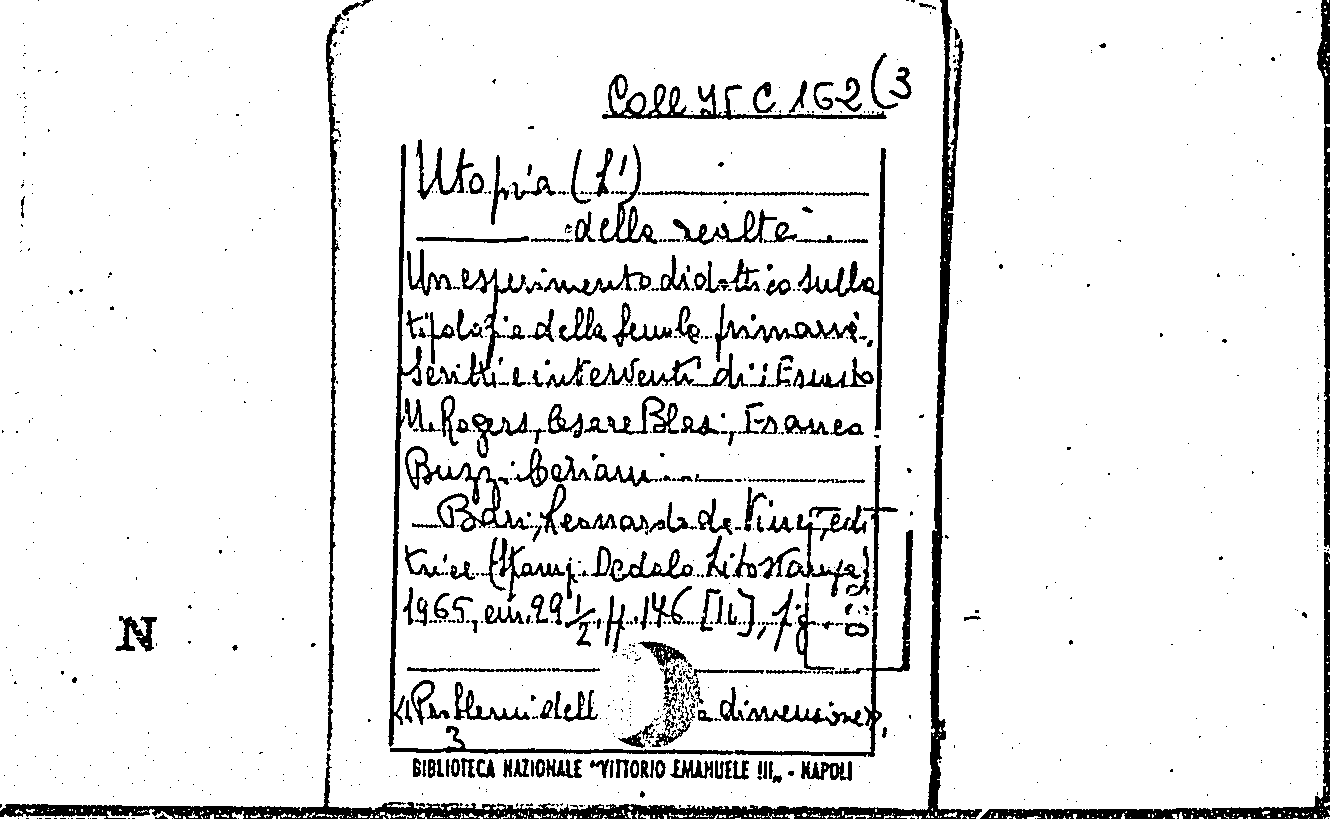 Coll 45 C 162 (3
Utopia (L')
della realtà.
Un esperimento didattico sulla
tipologia della scuola primaria.
Scritti e interventi di: Ernesto
N. Rogers, Cesare Blasi, Franco
Buzzi Ceriani...
Bari, Leonardo da Vinci, edi
trice (Stamp. Dedalo Litostampa)
1965, cm. 29 1/2, pp. 146 [16], fig.
N
«Problemi dell a dimensione»,
3
BIBLIOTECA NAZIONALE "VITTORIO EMANUELE III„ - NAPOLI